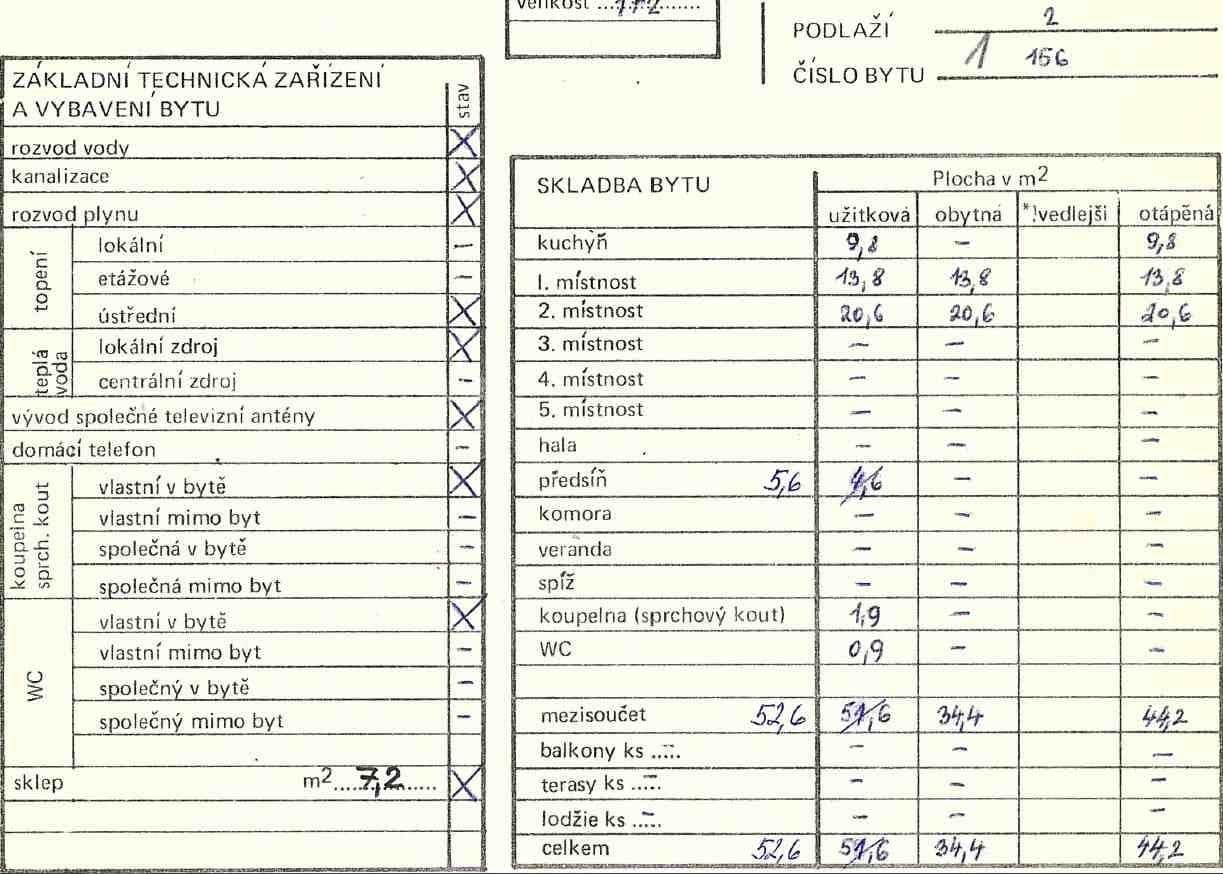 velikost ... 1+2 ...
PODLAŽÍ 2
ČÍSLO BYTU 1 156
ZÁKLADNÍ TECHNICKÁ ZAŘÍZENÍ
A VYBAVENÍ BYTU
stav
rozvod vody X
kanalizace X
rozvod plynu X
topení
lokální –
etážové –
ústřední X
teplá voda
lokální zdroj X
centrální zdroj –
vývod společné televizní antény X
domácí telefon –
koupelna sprch. kout
vlastní v bytě X
vlastní mimo byt –
společná v bytě –
společná mimo byt –
WC
vlastní v bytě X
vlastní mimo byt –
společný v bytě –
společný mimo byt –
sklep m2....7,2...... X
SKLADBA BYTU Plocha v m2
užitková obytná *!vedlejši otápěná
kuchyň 9,8 – 9,8
I. místnost 13,8 13,8 13,8
2. místnost 20,6 20,6 20,6
3. místnost – – –
4. místnost – – –
5. místnost – – –
hala – – –
předsíň 5,6 4,6 – –
komora – – –
veranda – – –
spíž – – –
koupelna (sprchový kout) 1,9 – –
WC 0,9 – –
mezisoučet 52,6 51,6 34,4 44,2
balkony ks ..–.. – – –
terasy ks ..–.. – – –
lodžie ks ..–.. – – –
celkem 52,6 51,6 34,4 44,2